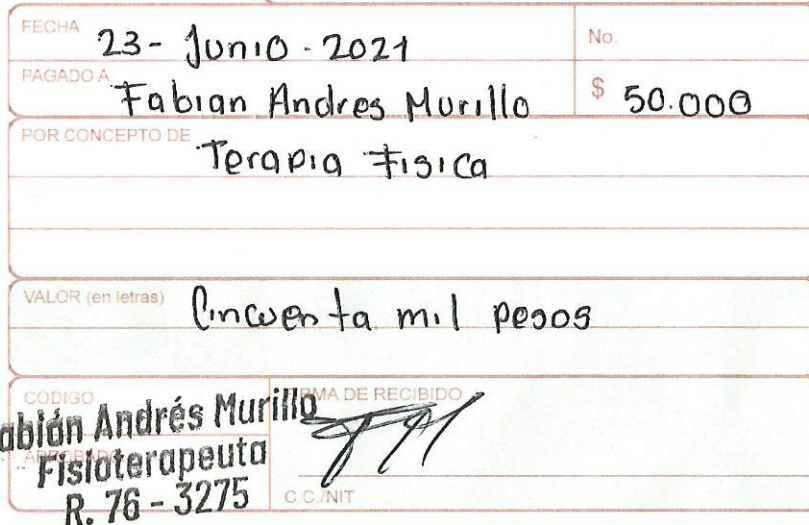 FECHA 23 - Junio - 2021 No.
PAGADO A Fabian Andres Murillo $ 50.000
POR CONCEPTO DE Terapia Fisica
VALOR (en letras) Cincuenta mil pesos
CÓDIGO FIRMA DE RECIBIDO
abián Andrés Murillo
APROBADO
Fisioterapeuta
R. 76 - 3275 C.C./NIT